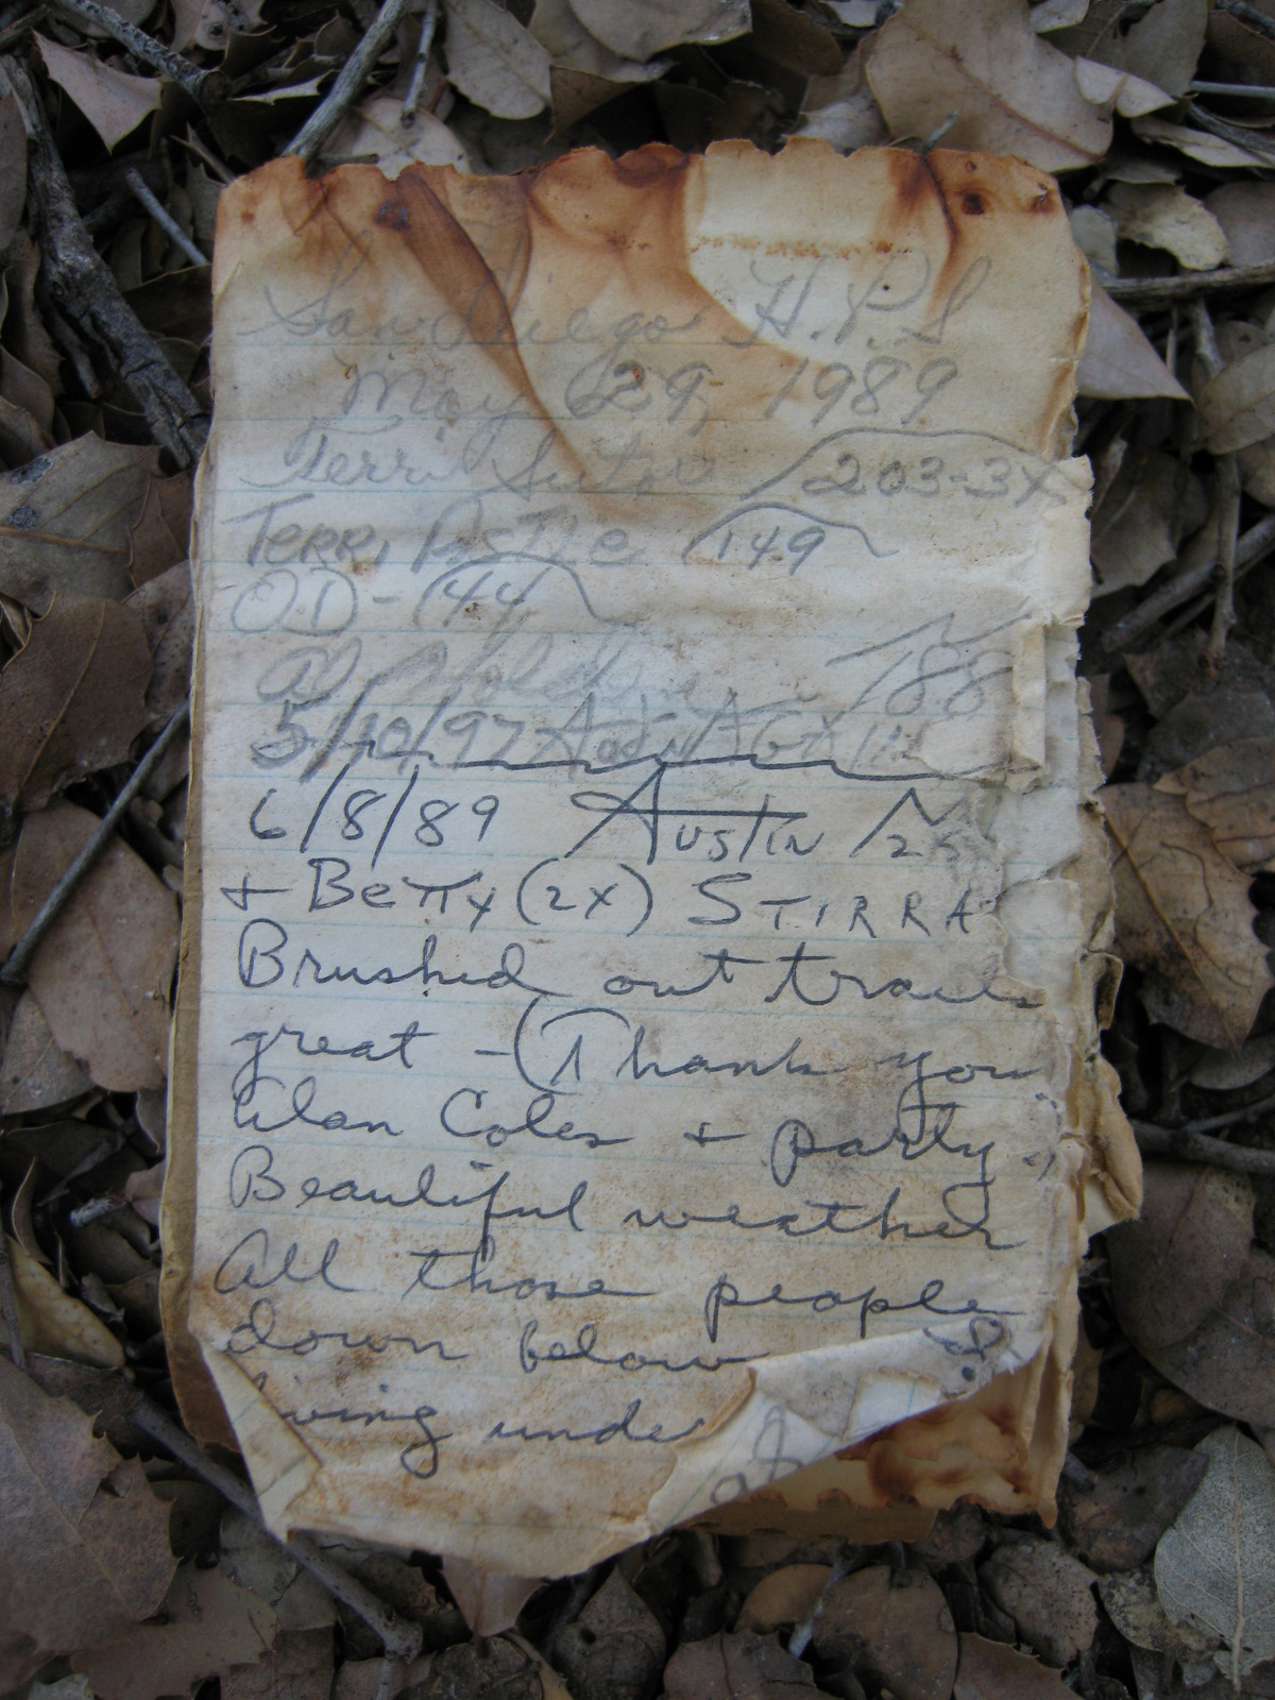 San Diego H.P.S
May 29, 1989
Terri Sutor 203-3X
TERRI 149
OD - 44
Al 188
5/10/97
6/8/89 AUSTIN
+ BeTTy (2X) STIRRA
Brushed out trails
great - (Thank you
Alan Coles + party.)
Beautiful weather
All those people
down below
living under